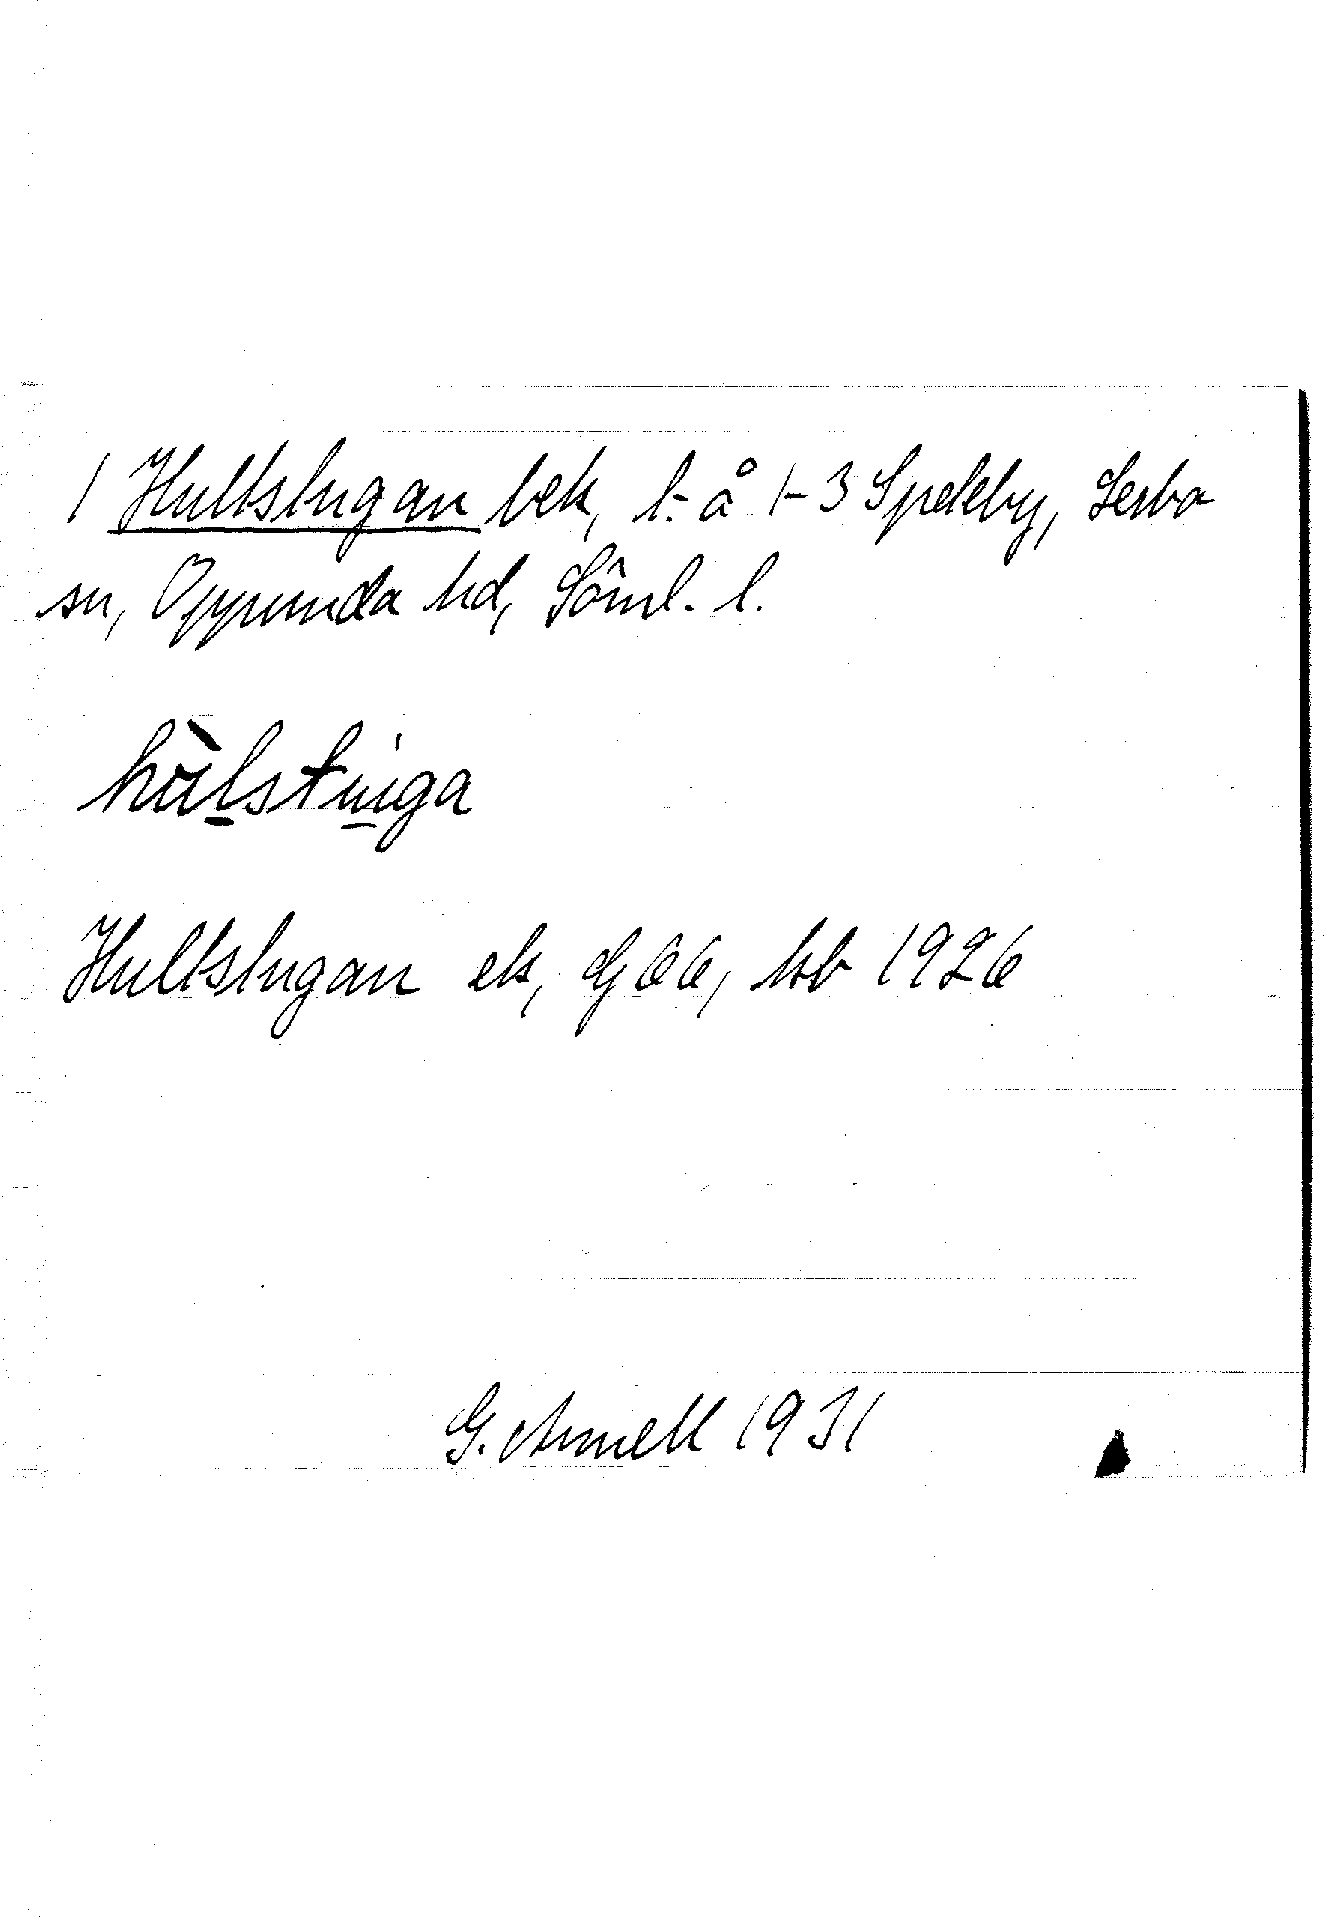 1 Hultstugan bek, t. å 1-3 Spekeby, Lerbo
sn, Oppunda hd, Söml. l.
hùlstuga
Hultstugan ek, Gj 66, hsb 1926
G. Arnell 1931